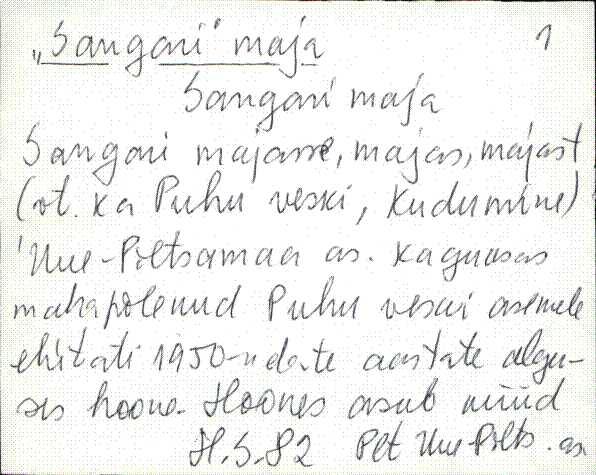 „Sangari“ maja 1
Sangari maja
Sangari majasse, majas, majast
(vt. ka Puhu veski, Kudumine)
Uue-Põltsamaa as. kaguosas
mahapõlenud Puhu veski asemele
ehitati 1950-ndate aastate algu-
ses hoone. Hoones asub nüüd
H.S. 82 Plt Uue-Põlts. as